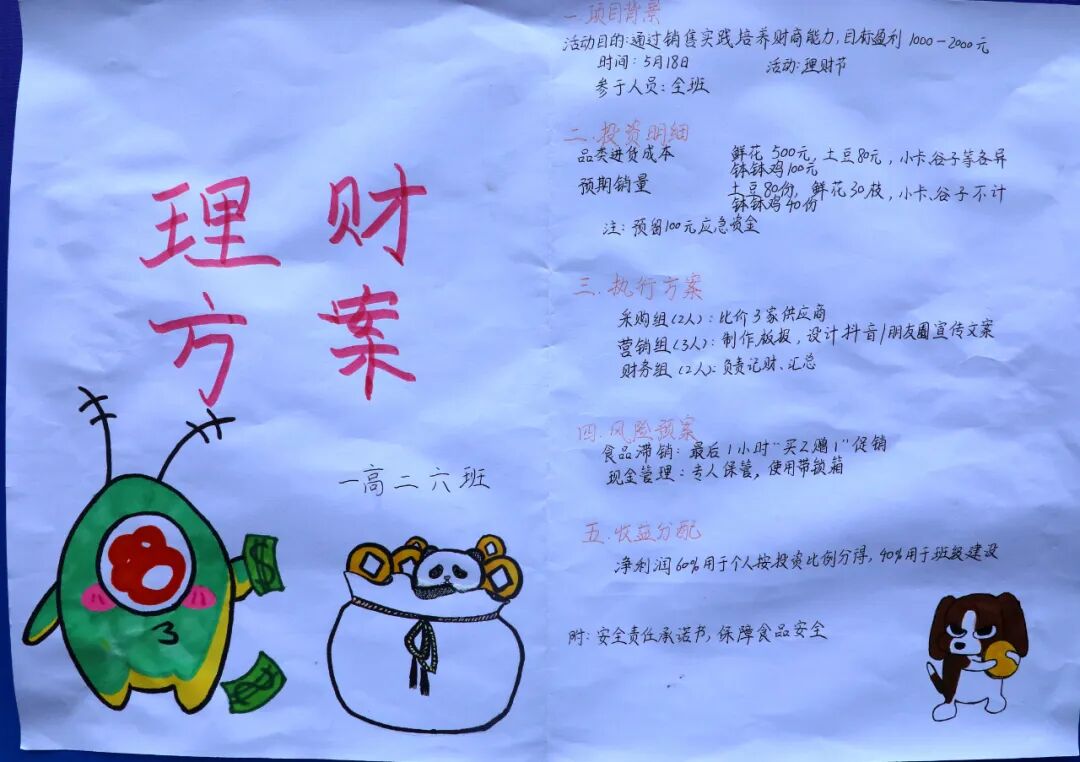 理财
方案
一高二六班
一.项目背景
活动目的:通过销售实践培养财商能力,目标盈利1000-2000元
时间:5月18日 活动:理财节
参于人员:全班
二.投资明细
品类进货成本 鲜花 500元,土豆80元,小卡、谷子等各异
钵钵鸡100元
预期销量 土豆80份,鲜花30枝,小卡、谷子不计
钵钵鸡40份
注:预留100元应急资金
三.执行方案
采购组(2人):比价3家供应商
营销组(3人):制作板报,设计抖音/朋友圈宣传文案
财务组(2人):负责记财、汇总
四.风险预案
食品滞销:最后1小时“买2赠1”促销
现金管理:专人保管,使用带锁箱
五.收益分配
净利润60%用于个人按投资比例分得,40%用于班级建设
附:安全责任承诺书,保障食品安全